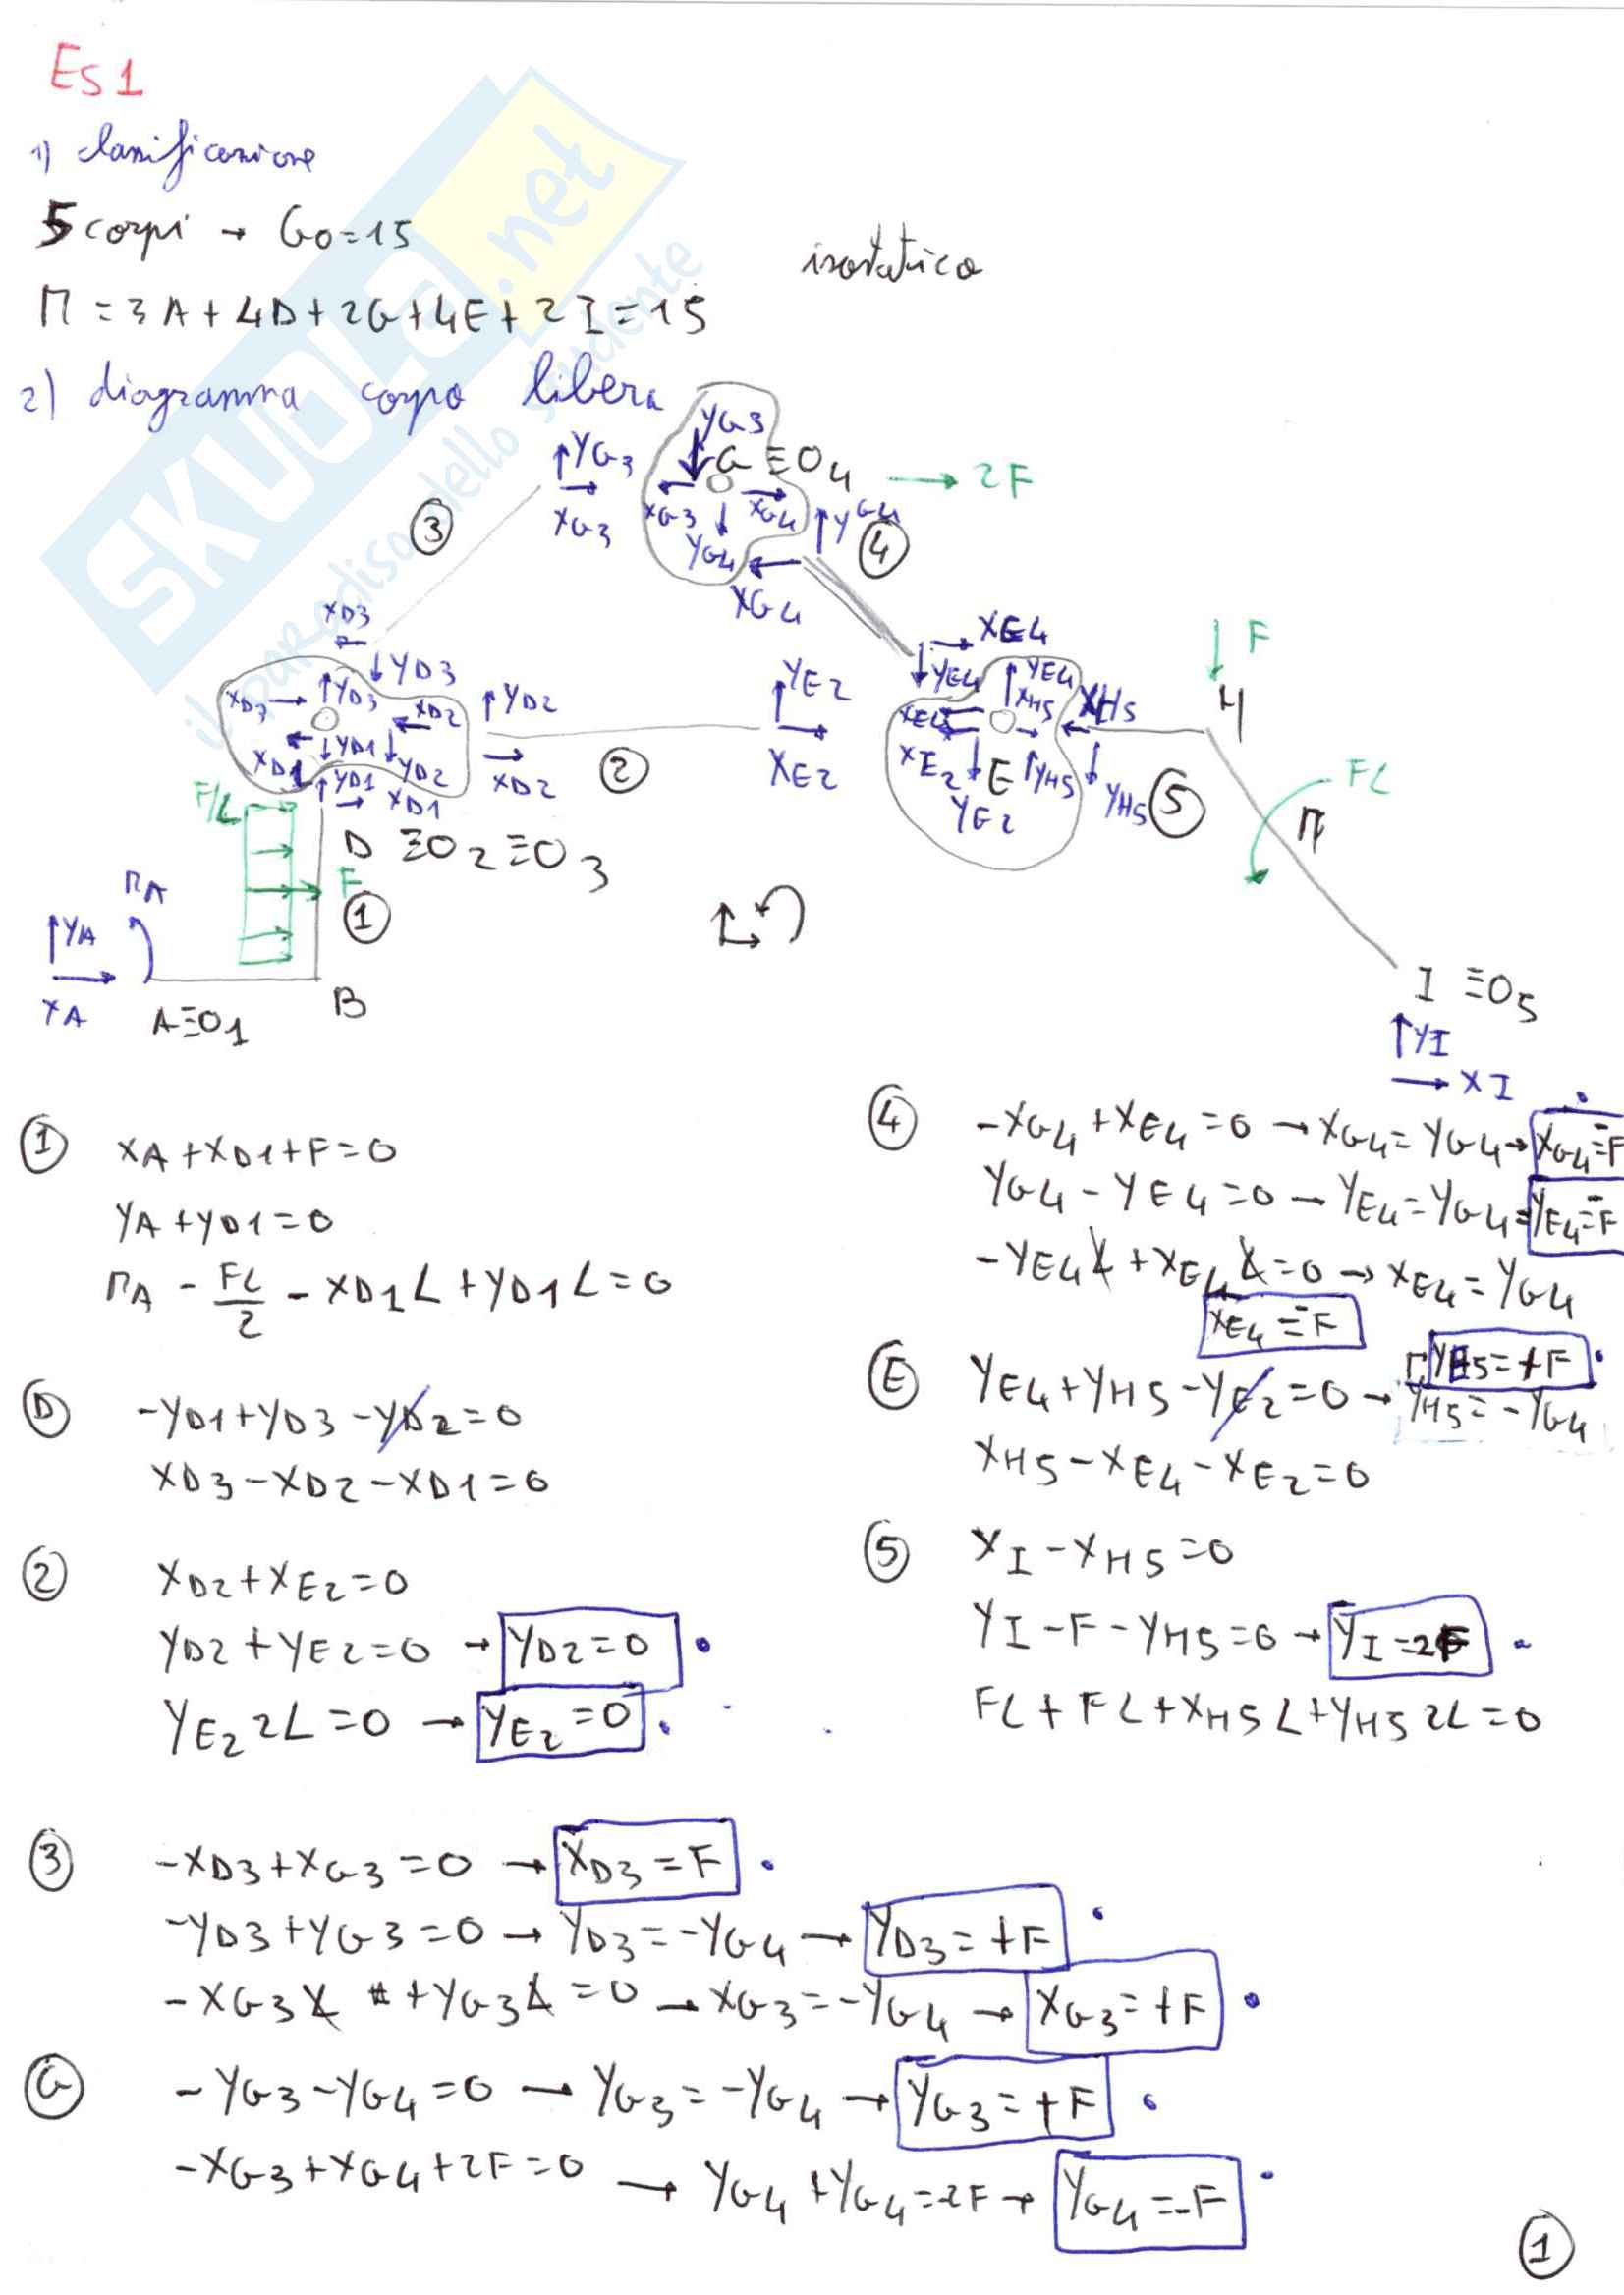 Es1
1) classificazione
5 corpi → Go=15
isostatico
M = 3A + 4D + 2G + 4E + 2I = 15
2) diagramma corpo libero
SKUOLA.net
il paradiso dello studente
YG3
YG3
G ≡O4
2F
XG3
XG3
XG4
YG4
YG4
3
4
XG4
XD3
XE4
F
YD3
YE4
YE4
YE2
XD3
YD3
YD2
XD2
XH5
XH5
H
XE4
YD1
XD1
YD2
XD2
2
XE2
XE2
E
YH5
YH5
5
FL
YD1
XD1
YE2
M
F/L
D ≡O2≡O3
F
MA
1
YA
XA
A≡O1
B
I ≡O5
YI
XI
1 XA+XD1+F=0
YA+YD1=0
MA - FL/2 - XD1L + YD1L=0
D -YD1+YD3-YD2=0
XD3-XD2-XD1=0
2 XD2+XE2=0
YD2+YE2=0 → YD2=0
YE2 2L=0 → YE2=0
4 -XG4+XE4=0 → XG4=YG4→ XG4=-F
YG4-YE4=0 → YE4=YG4= YE4=-F
-YE4L+XE4L=0 → XE4=YG4
XE4=-F
E YE4+YH5-YE2=0 → YH5=-YG4
YH5=+F
XH5-XE4-XE2=0
5 XI-XH5=0
YI-F-YH5=0 → YI=2F
FL+FL+XH5L+YH52L=0
3 -XD3+XG3=0 → XD3=F
-YD3+YG3=0 → YD3=-YG4 → YD3=+F
-XG3L+YG3L=0 → XG3=-YG4 → XG3=+F
G -YG3-YG4=0 → YG3=-YG4 → YG3=+F
-XG3+XG4+2F=0 → YG4+YG4=-2F → YG4=-F
1